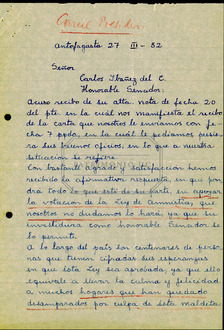 Antofagasta 27 III - 52
Señor
Carlos Ibañez del C.
Honorable Senador:
Acuso recibo de su atta. nota de fecha 20
del pte. en la cuál nos manifiesta el recibo
de la carta que nosotros le enviamos con fe-
cha 7 ppdo, en la cuál le pediamos pusie-
ra sus buenos oficios, en lo que a nuestra
situación se refiere.
Con bastante agrado y satisfacción hemos
recibido la afirmativa respuesta, en que pon-
drá todo lo que esté de su parte, en apoyar
la votación de la Ley de Amnistia, que
nosotros no dudamos lo hará, ya que su
investidura como honorable Senador se
lo permite.
A lo largo del país son centenares de perso-
nas que tienen cifradas sus esperanzas
en que ésta Ley sea aprobada, ya que ello
equivale a llevar la calma y felicidad
a muchos hogares que han quedado
desamparados por culpa de esta maldita